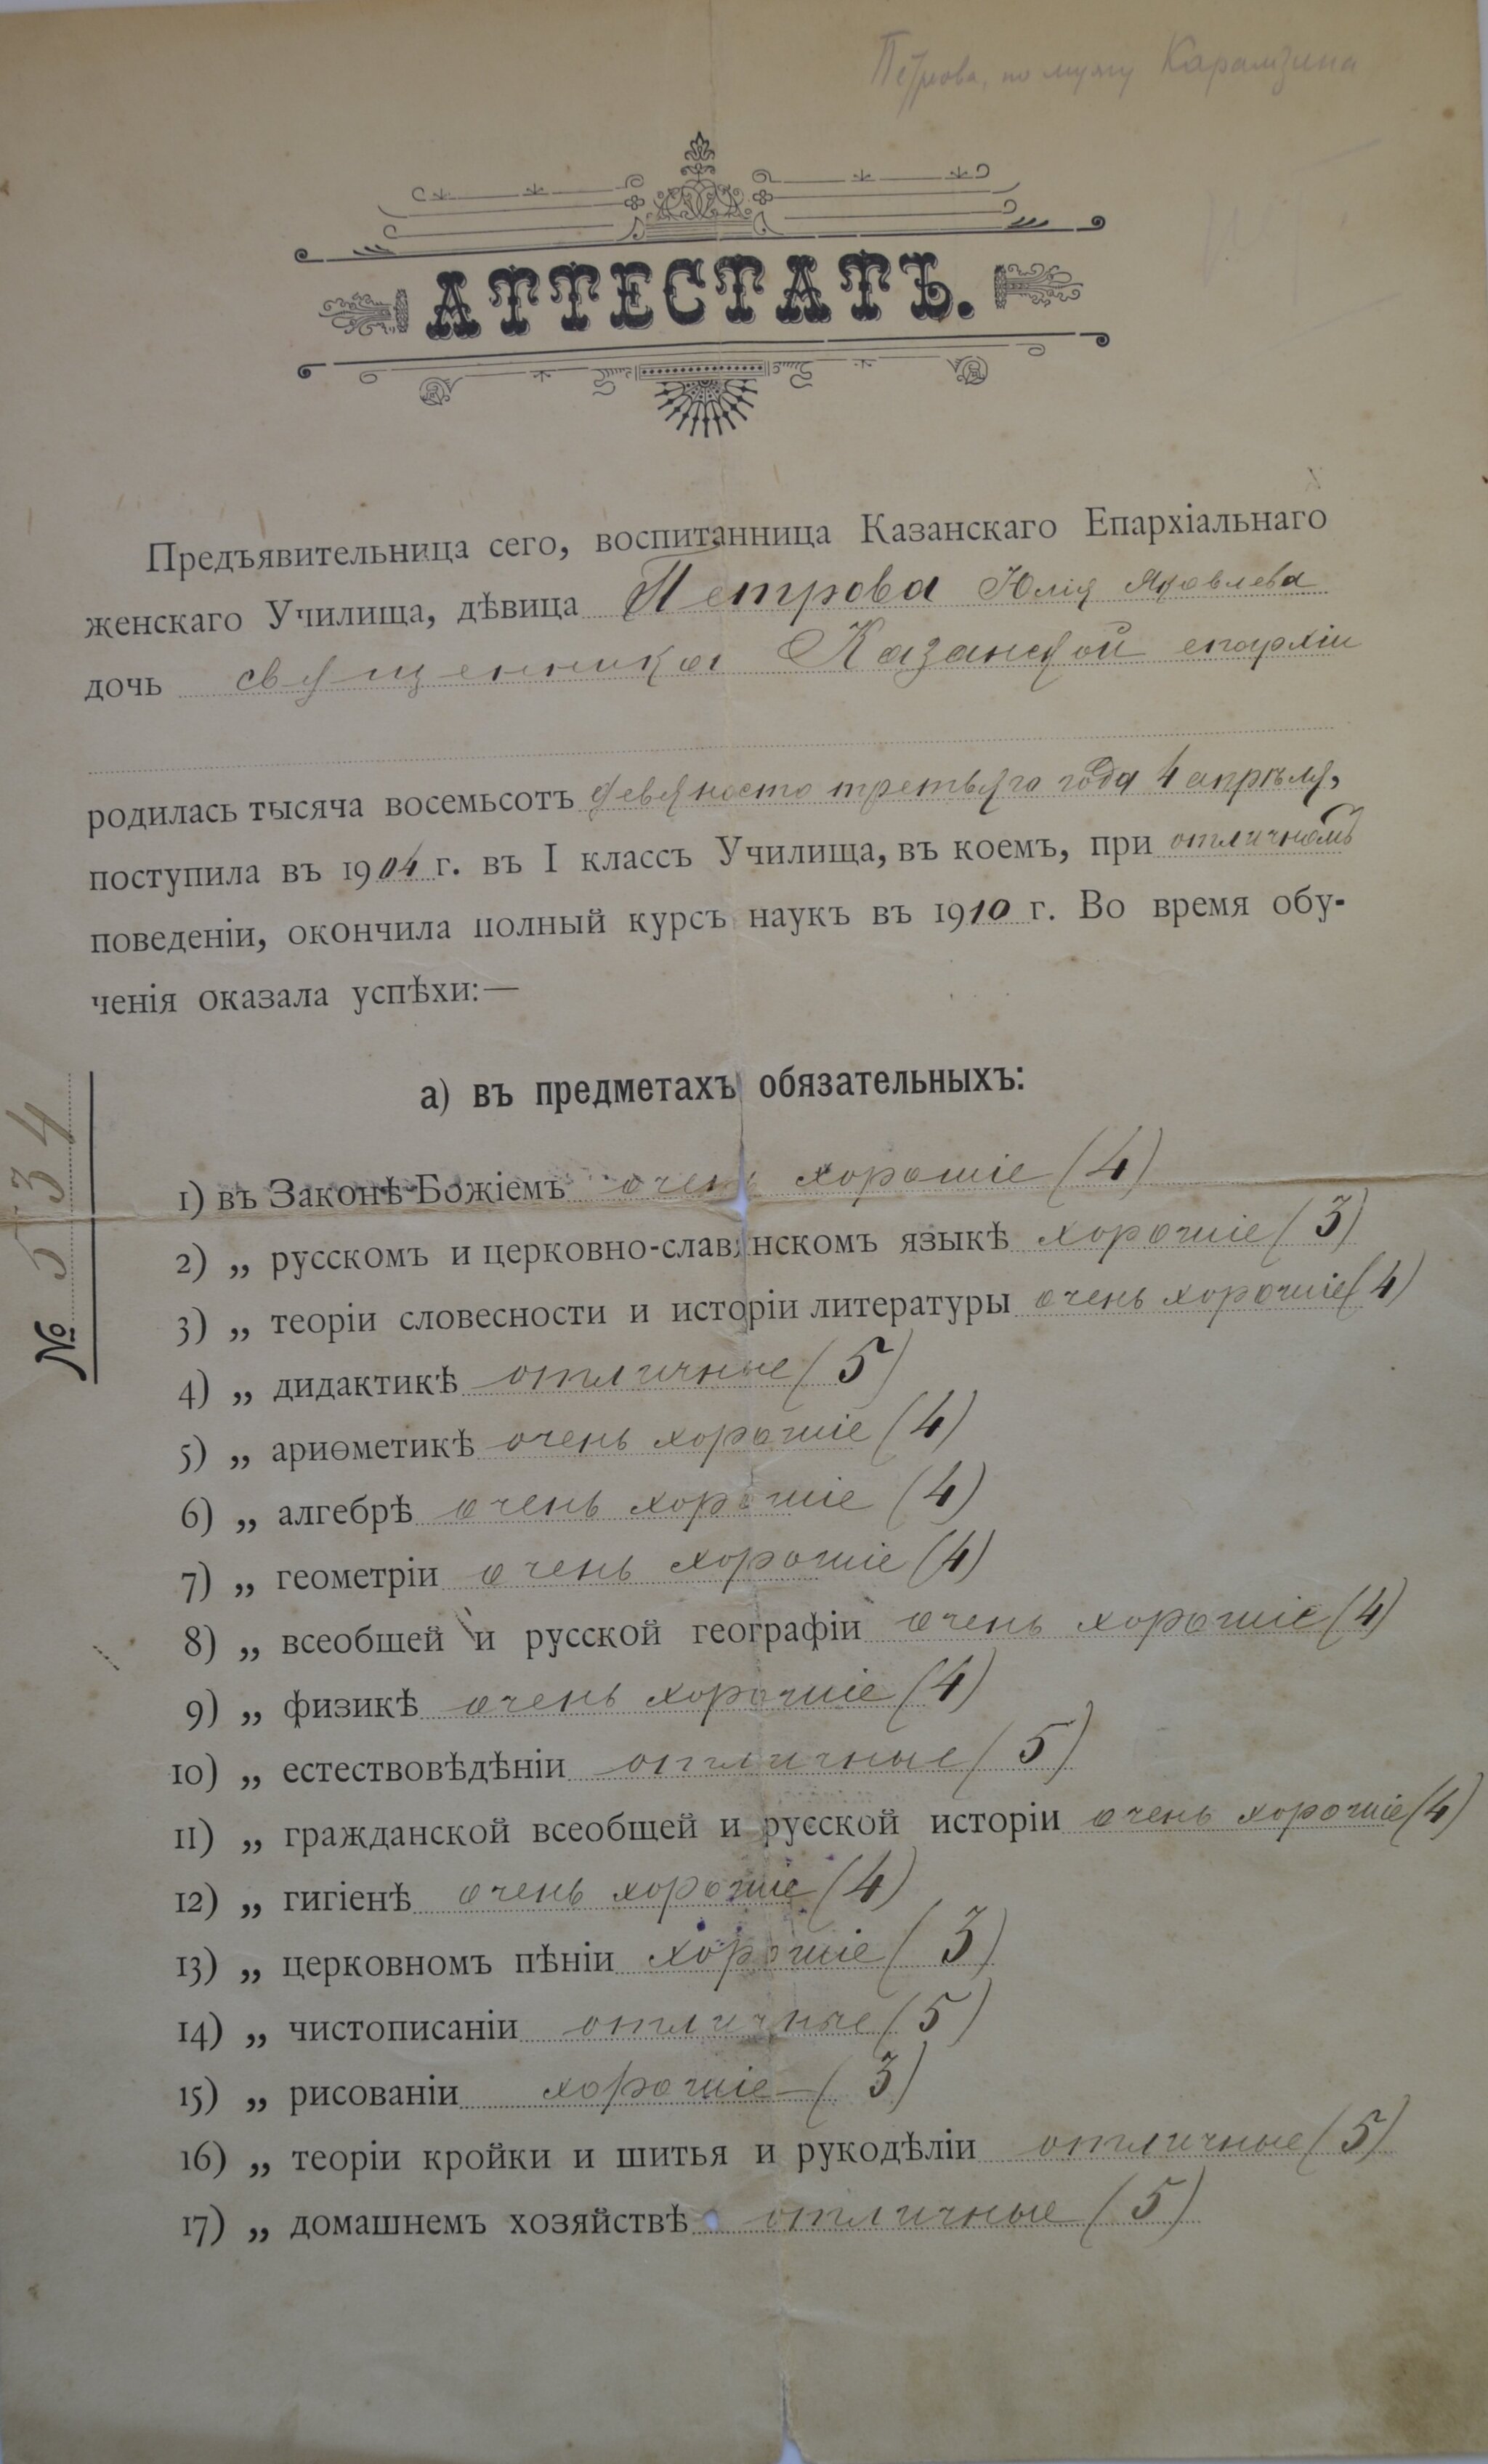 Петрова, по мужу Карамзина
АТТЕСТАТЪ.
Предъявительница сего, воспитанница Казанскаго Епархіальнаго
женскаго Училища, дѣвица Петрова Юлія Яковлева
дочь священника Казанской епархіи
родилась тысяча восемьсотъ девяносто третьяго года 4 апрѣля,
поступила въ 1904 г. въ I классъ Училища, въ коемъ, при отличномъ
поведеніи, окончила полный курсъ наукъ въ 1910 г. Во время обу-
ченія оказала успѣхи:—
а) въ предметахъ обязательныхъ:
1) въ Законѣ Божіемъ очень хорошіе (4)
2) „ русскомъ и церковно-славянскомъ языкѣ хорошіе (3)
3) „ теоріи словесности и исторіи литературы очень хорошіе (4)
4) „ дидактикѣ отличные (5)
5) „ ариѳметикѣ очень хорошіе (4)
6) „ алгебрѣ очень хорошіе (4)
7) „ геометріи очень хорошіе (4)
8) „ всеобщей и русской географіи очень хорошіе (4)
9) „ физикѣ очень хорошіе (4)
10) „ естествовѣдѣніи отличные (5)
11) „ гражданской всеобщей и русской исторіи очень хорошіе (4)
12) „ гигіенѣ очень хорошіе (4)
13) „ церковномъ пѣніи хорошіе (3)
14) „ чистописаніи отличные (5)
15) „ рисованіи хорошіе — (3)
16) „ теоріи кройки и шитья и рукодѣліи отличные (5)
17) „ домашнемъ хозяйствѣ отличные (5)
№ 534